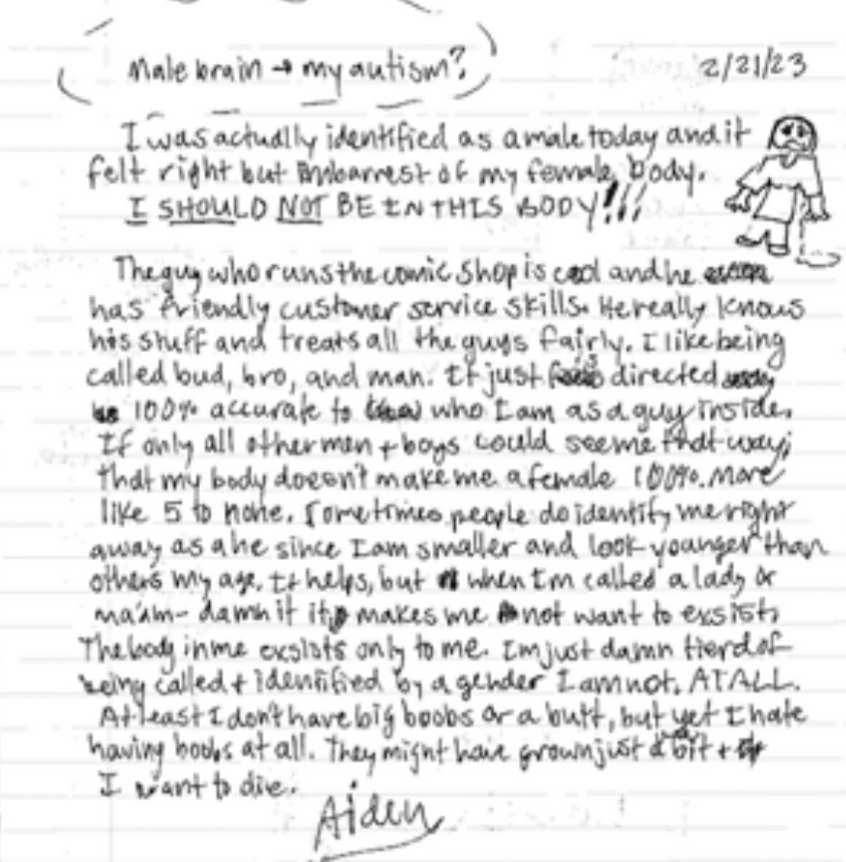 Male brain → my autism?
2/21/23
I was actually identified as a male today and it
felt right but Imbarrest of my female body.
I SHOULD NOT BE IN THIS BODY!!!
The guy who runs the comic shop is cool and he
has friendly customer service skills. He really knows
his stuff and treats all the guys fairly. I like being
called bud, bro, and man. It just is directed
100% accurate to who I am as a guy inside.
If only all other men + boys could see me that way;
that my body doesn't make me a female 100%. More
like 5 to none. Sometimes people do identify me right
away as a he since I am smaller and look younger than
others my age. It helps, but when I'm called a lady or
ma'am- damn it it makes me not want to exsist.
The body in me exsists only to me. I'm just damn tierd of
being called + identified by a gender I am not. AT ALL.
At least I don't have big boobs or a butt, but yet I hate
having boobs at all. They might have grown just a bit +
I want to die.
Aiden